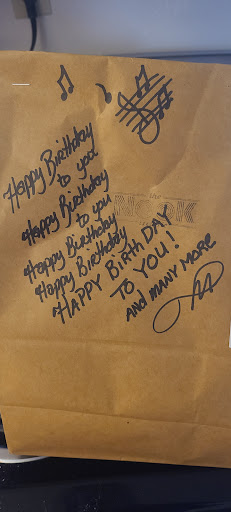 Happy Birthday
to you
Happy Birthday
to you
Happy Birthday
Happy Birthday
HAPPY BIRTH DAY
TO YOU!
AND MANY MORE